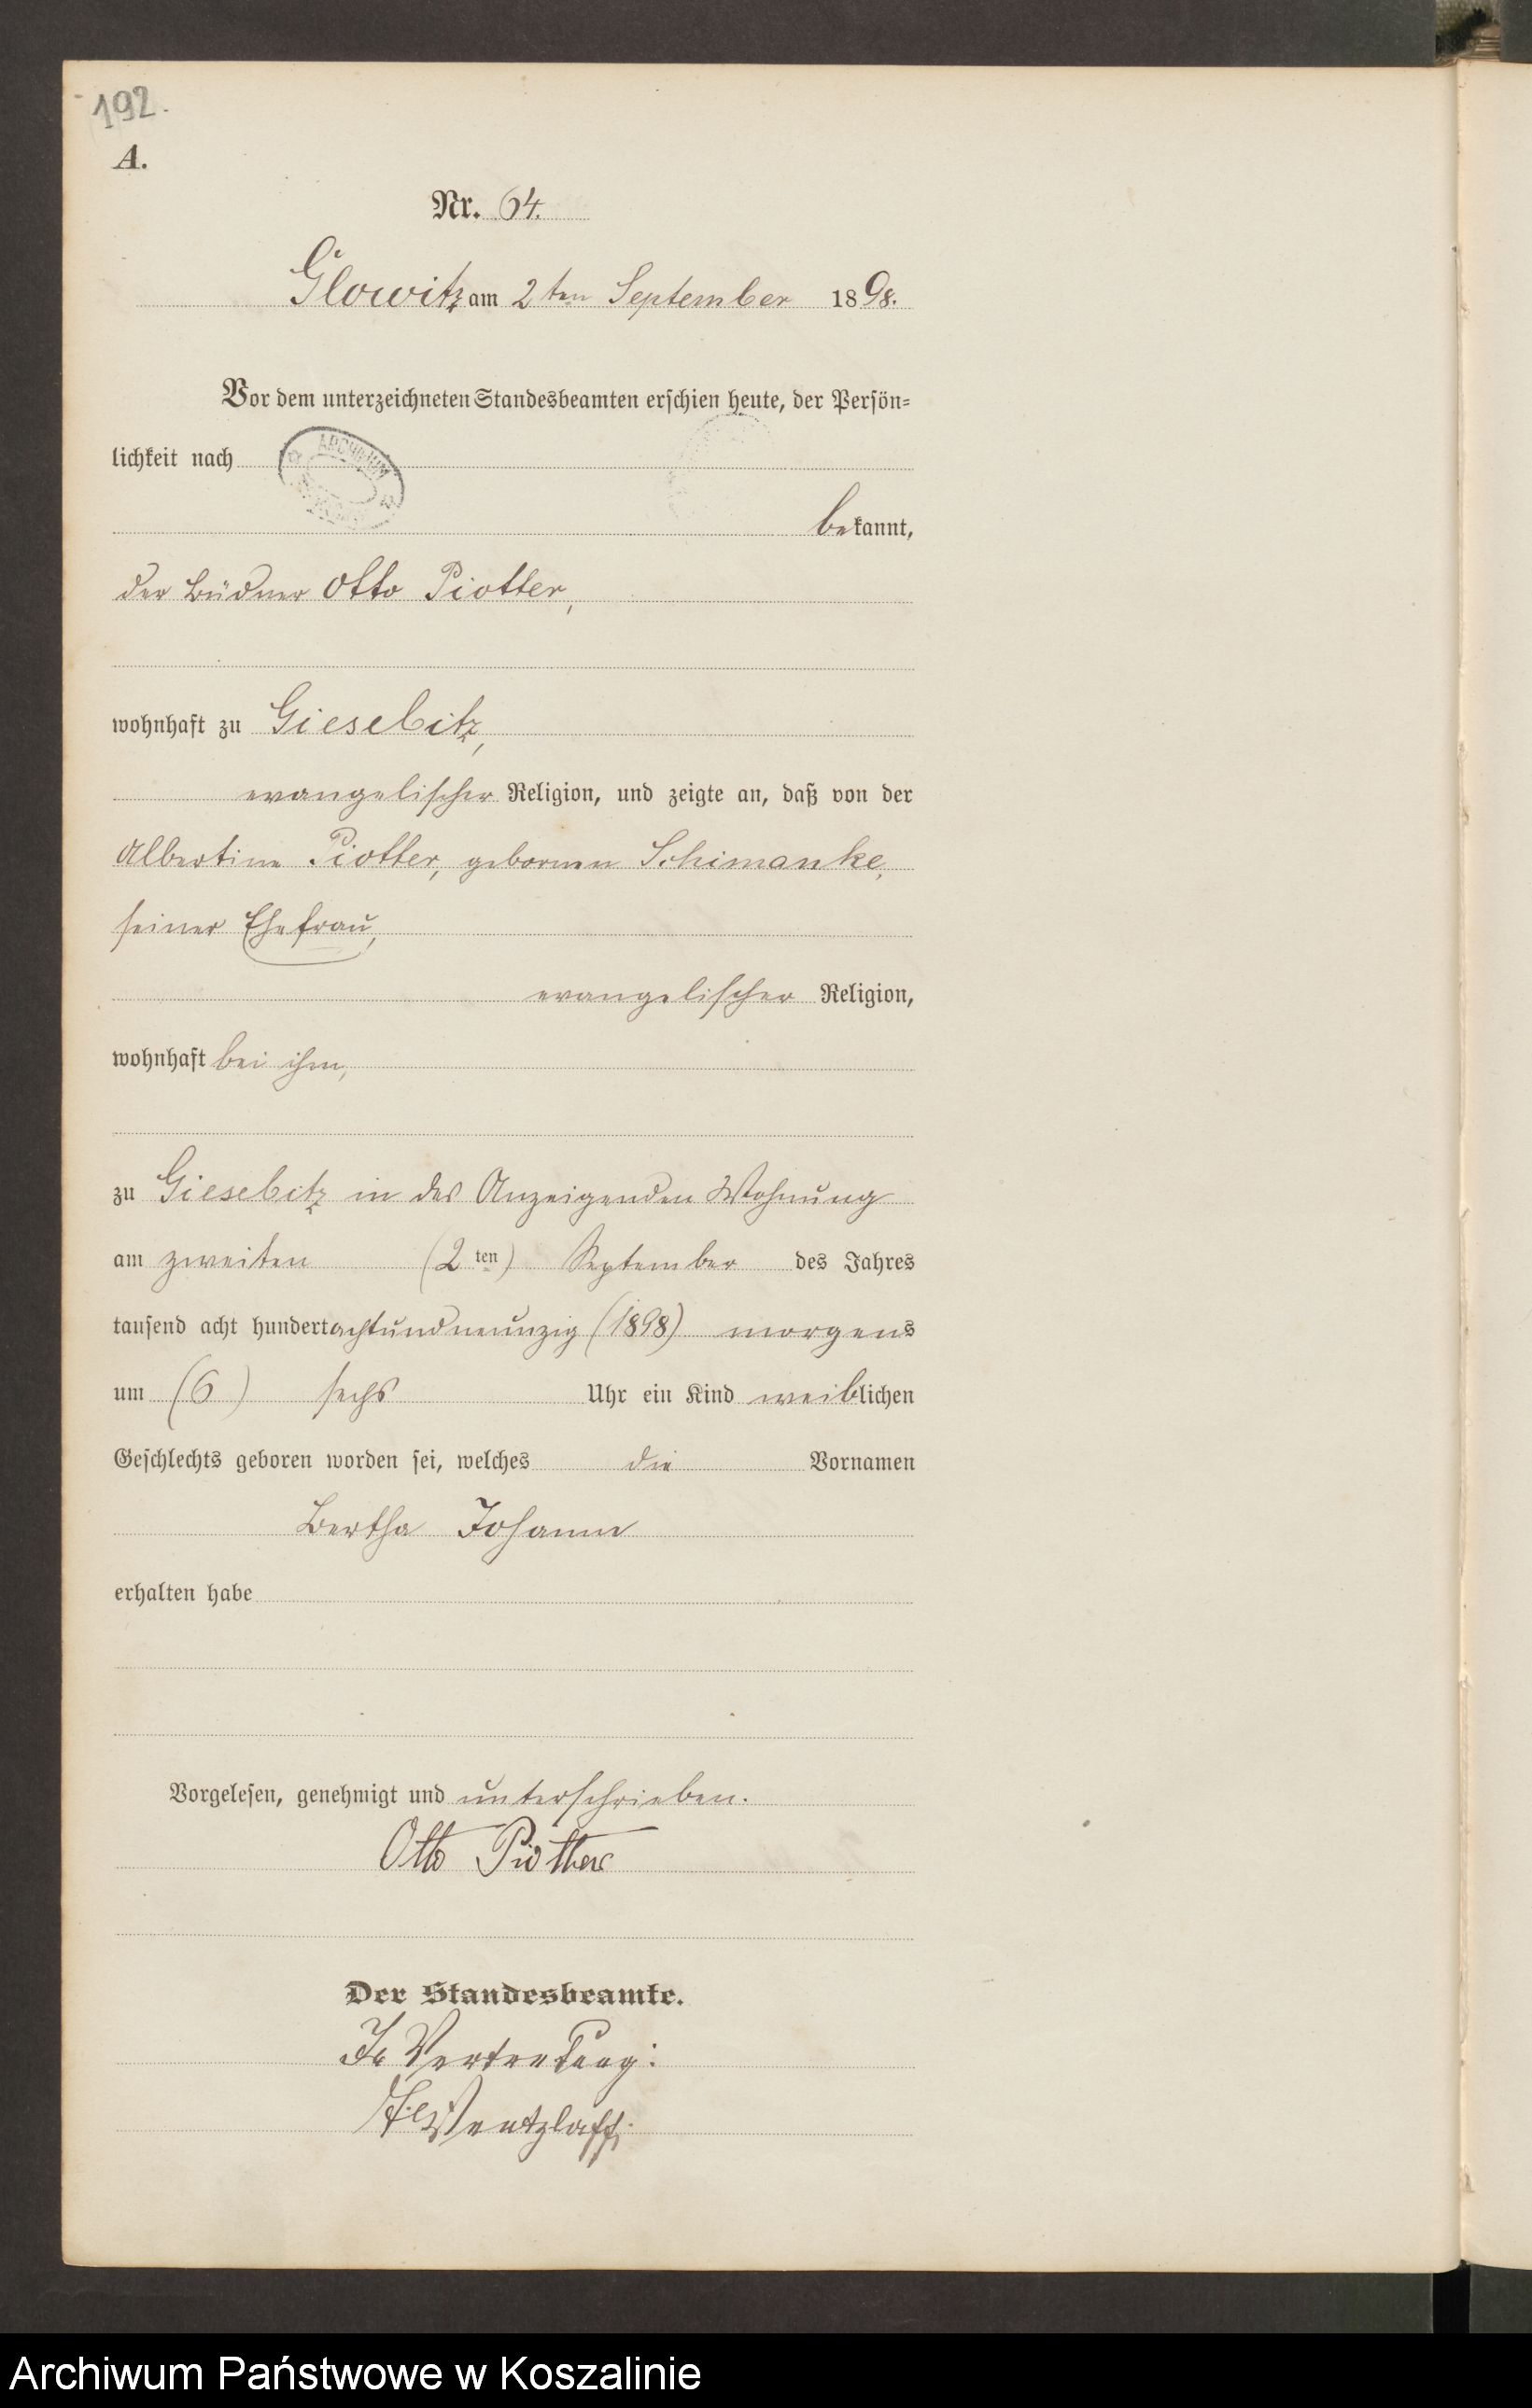 192.
A.
Nr. 64.
Glowitz am 2ten September 1898.
Vor dem unterzeichneten Standesbeamten erschien heute, der Persön-
lichkeit nach
ARCHIWUM
bekannt,
der Büdner Otto Piotter,
wohnhaft zu Giesebitz,
evangelischer Religion, und zeigte an, daß von der
Albertine Piotter, geborenen Schimanke,
seiner Ehefrau,
evangelischer Religion,
wohnhaft bei ihm,
zu Giesebitz in des Anzeigenden Wohnung
am zweiten (2 ten) September des Jahres
tausend acht hundert achtundneunzig (1898) morgens
um (6) sechs Uhr ein Kind weiblichen
Geschlechts geboren worden sei, welches die Vornamen
Bertha Johanne
erhalten habe
Vorgelesen, genehmigt und unterschrieben.
Otto Piotter
Der Standesbeamte.
In Vertretung:
Wentzlaff.
Archiwum Państwowe w Koszalinie